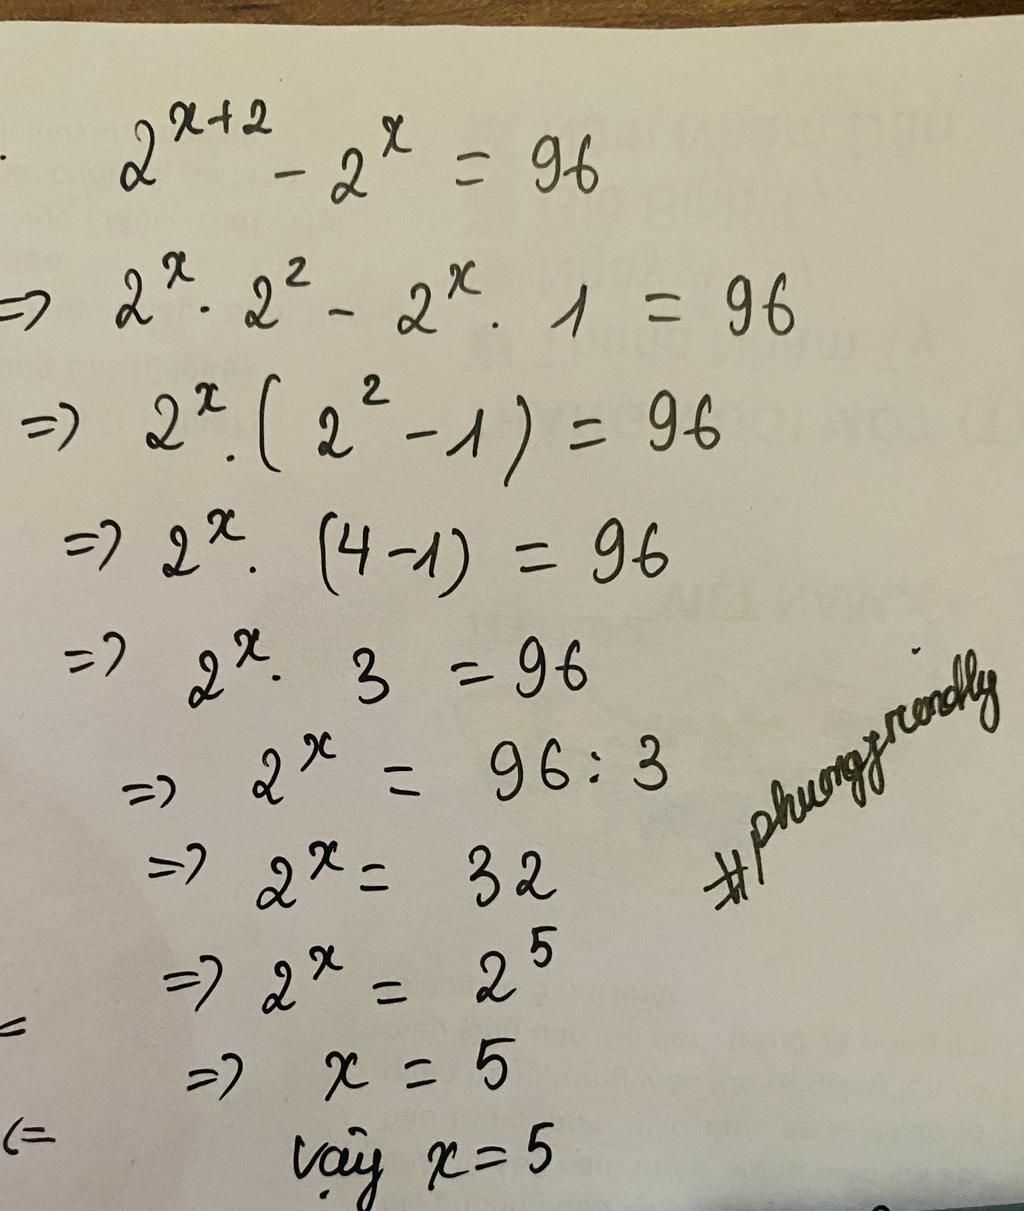 2^{x+2} - 2^x = 96
=> 2^x . 2^2 - 2^x . 1 = 96
=> 2^x . ( 2^2 - 1 ) = 96
=> 2^x . (4-1) = 96
=> 2^x . 3 = 96
=> 2^x = 96 : 3
=> 2^x = 32
=> 2^x = 2^5
=> x = 5
vậy x = 5
#phuongfriendly
=
(=